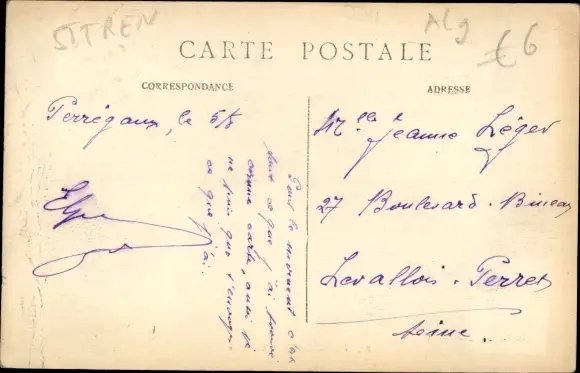 SITREN
Alg
€6
CARTE POSTALE
CORRESPONDANCE
ADRESSE
Perrégaux, le 5/8
Pour le moment c'est
tout ce que j'ai comme
carte, aussi je
ne puis que t'envoyer
ce que j'ai.
Mlle Jeanne Léger
27 Boulevard Bineau
Levallois-Perret
Seine.